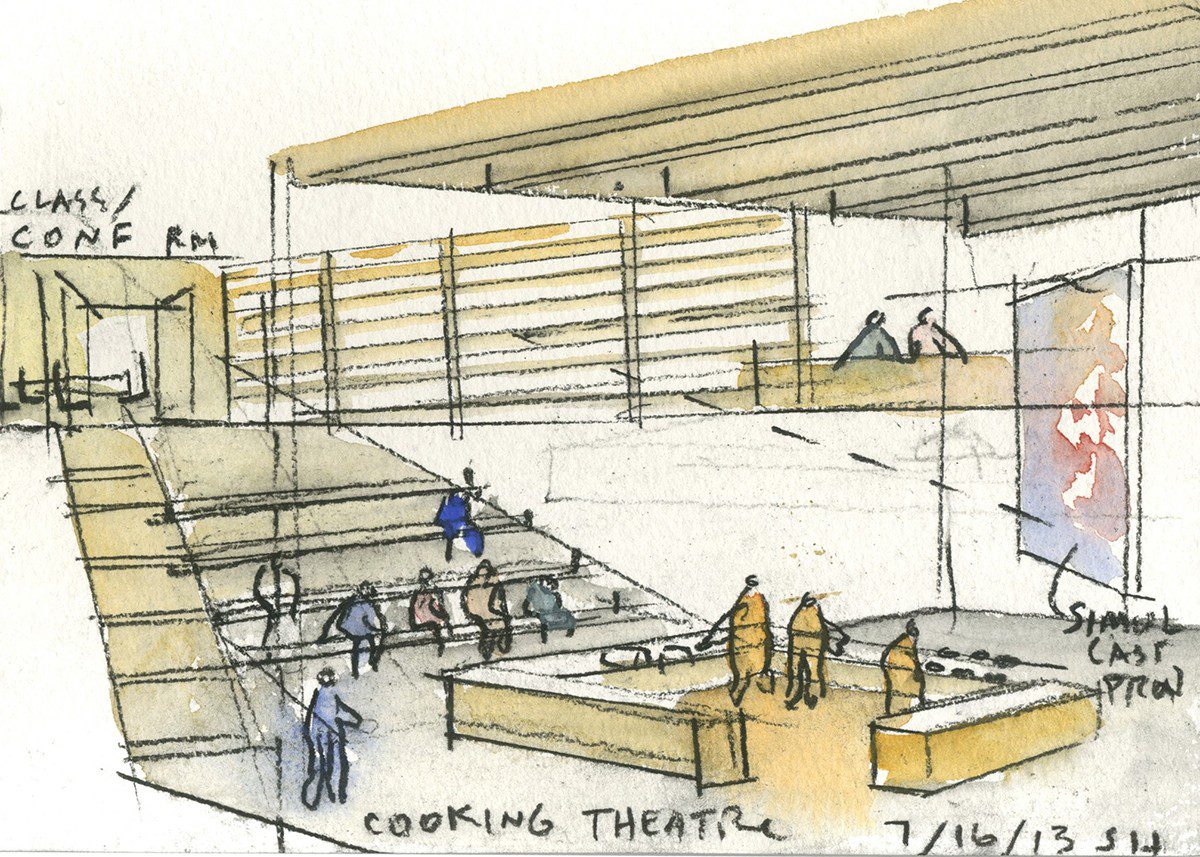 CLASS/
CONF RM
SIMUL
CAST
COOKING THEATRE
7/16/13 SH